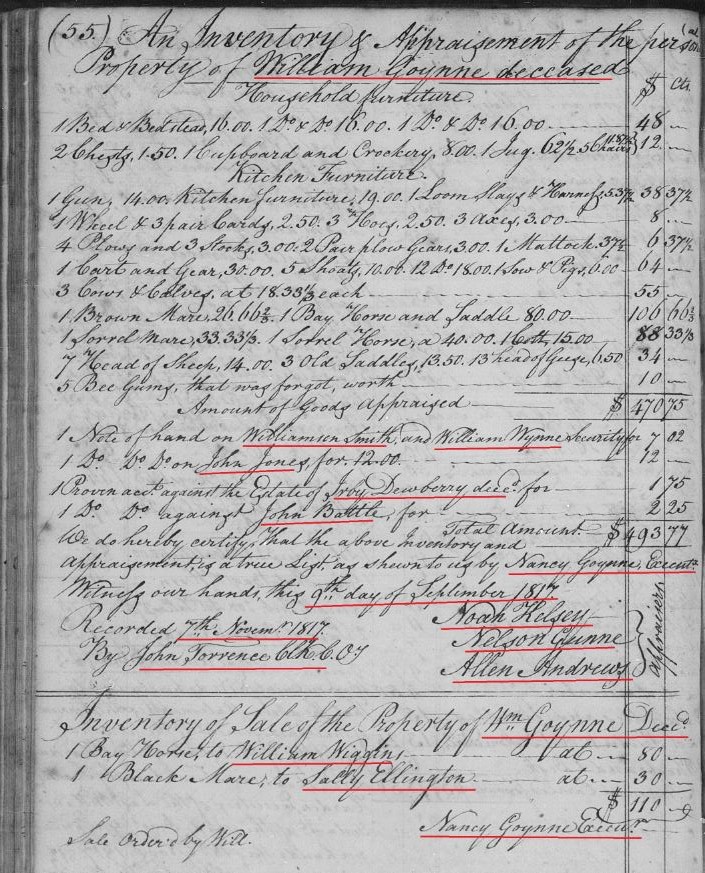 (55.) An Inventory & Appraisement of the personal
Property of William Goynne deceased
Household furniture. $ Cts.
1 Bed & Bedstead, 16.00. 1 Do & Do 16.00. 1 Do & Do 16.00 48 —
2 Chests, 1.50. 1 Cupboard and Crockery, 8.00. 1 Jug. 62½ 5 Chairs 1.87½ 12 —
Kitchen Furniture.
1 Gun, 14.00. Kitchen furniture, 19.00. 1 Loom Slays & Harness, 5.37½ 38 37½
1 Wheel & 3 pair Cards, 2.50. 3 Hoes, 2.50. 3 Axes, 3.00 8 —
4 Plows and 3 Stocks, 3.00. 2 Pair plow Gears, 3.00. 1 Mattock .37½ 6 37½
1 Cart and Gear, 30.00. 5 Shoats, 10.00. 12 Do 18.00. 1 Sow & Pigs, 6.00 64 —
3 Cows & Calves, at 18.33⅓ each 55 —
1 Brown Mare, 26.66⅔. 1 Bay Horse and Saddle 80.00 106 66⅔
1 Sorrel Mare, 33.33⅓. 1 Sorrel Horse, a 40.00. 1 Colt, 15.00 88 33⅓
7 Head of Sheep, 14.00. 3 Old Saddles, 13.50. 13 head of Geese, 6.50 34 —
5 Bee Gums, that was forgot, worth 10 —
Amount of Goods Appraised $ 470 75
1 Note of hand on Williamson Smith, and William Wynne Security for 7 02
1 Do Do Do on John Jones, for. 12.00. 12
1 Proven acct. against the Estate of Irby Dewberry decd. for 1 75
1 Do Do against John Battle, for 2 25
Total Amount. $ 493 77
We do hereby certify, That the above Inventory and
appraisement, is a true List, as shewn to us by Nancy Goynne, Executx
Witness our hands, this 9th day of September 1817
Noah Kelsey
Recorded 7th Novemr. 1817. Nelson Gunne
By John Torrence Clk C. O. Allen Andrews
Appraisers,
Inventory of Sale of the Property of Wm Goynne Decd.
1 Bay Horse, to William Wiggins at 80 —
1 Black Mare, to Sally Ellington at 30 —
$ 110 —
Nancy Goynne Execur.
Sale Order'd by Will.